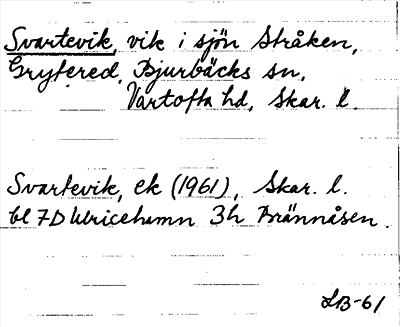 Svartevik, vik i sjön Stråken,
Gryfered, Bjurbäcks sn,
Vartofta hd, Skar. l.
Svartevik, ek (1961), Skar. l.
bl 7D Ulricehamn 3h Brännåsen.
LB-61